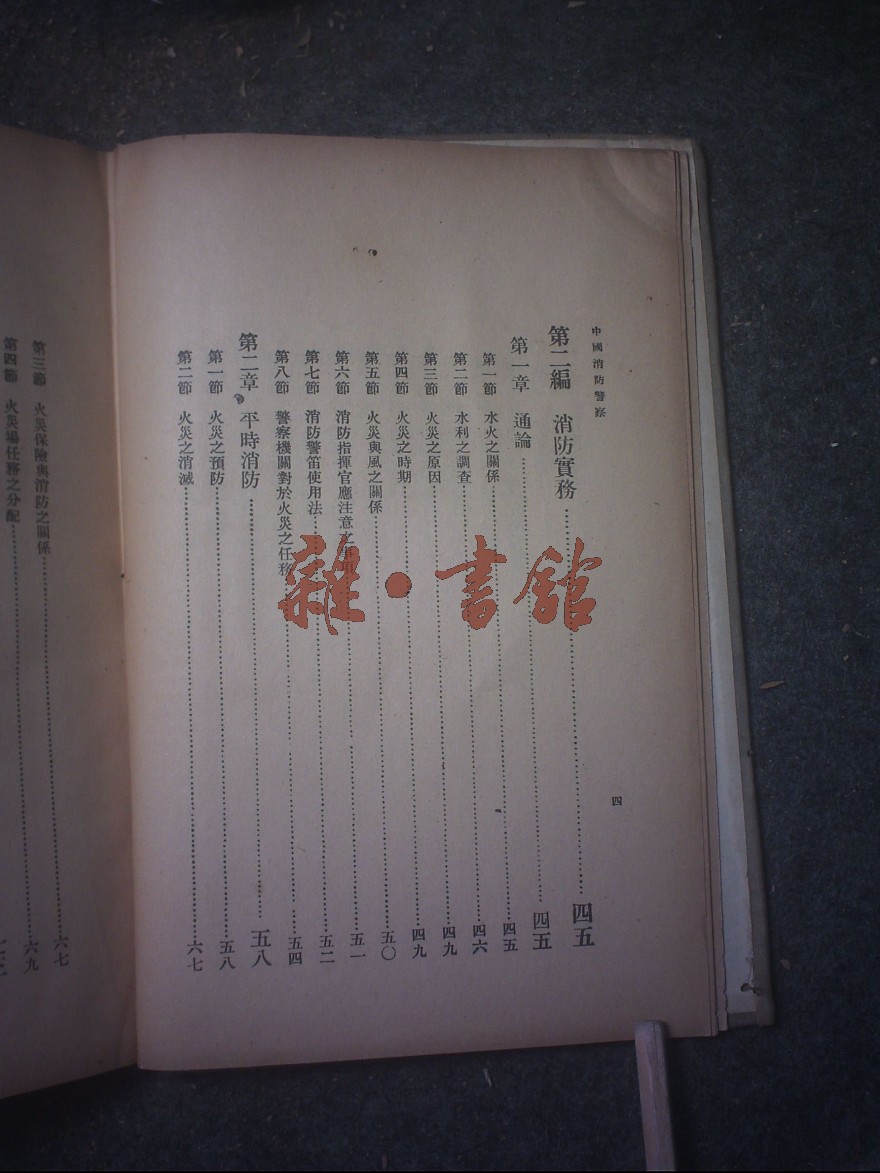 中國消防警察
四
第二編 消防實務 四五
第一章 通論 四五
第一節 水火之關係 四五
第二節 水利之調查 四六
第三節 火災之原因 四九
第四節 火災之時期 四九
第五節 火災與風之關係 五〇
第六節 消防指揮官應注意之事項 五一
第七節 消防警笛使用法 五二
第八節 警察機關對於火災之任務 五四
第二章 平時消防 五八
第一節 火災之預防 五八
第二節 火災之消滅 六七
第三節 火災保險與消防之關係 六七
第四節 火災場任務之分配 六九
雜·書館